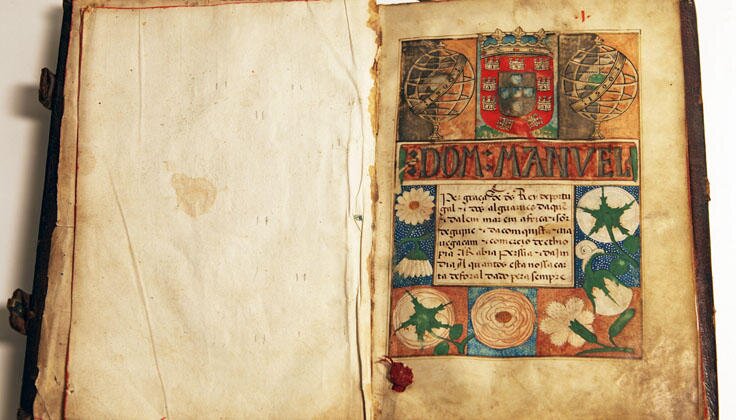 DOM: MANVEL
Per graça de ds Rey de portu
gal ⁊ dos alguarues daquē
⁊ dalem mar em africa sñor
de guine ⁊ da comquista na
uegacam ⁊ comercio de ethio
pia Arabia persia ⁊ da jn
dia A quantos esta nossa car
ta de foral dado pera sempre